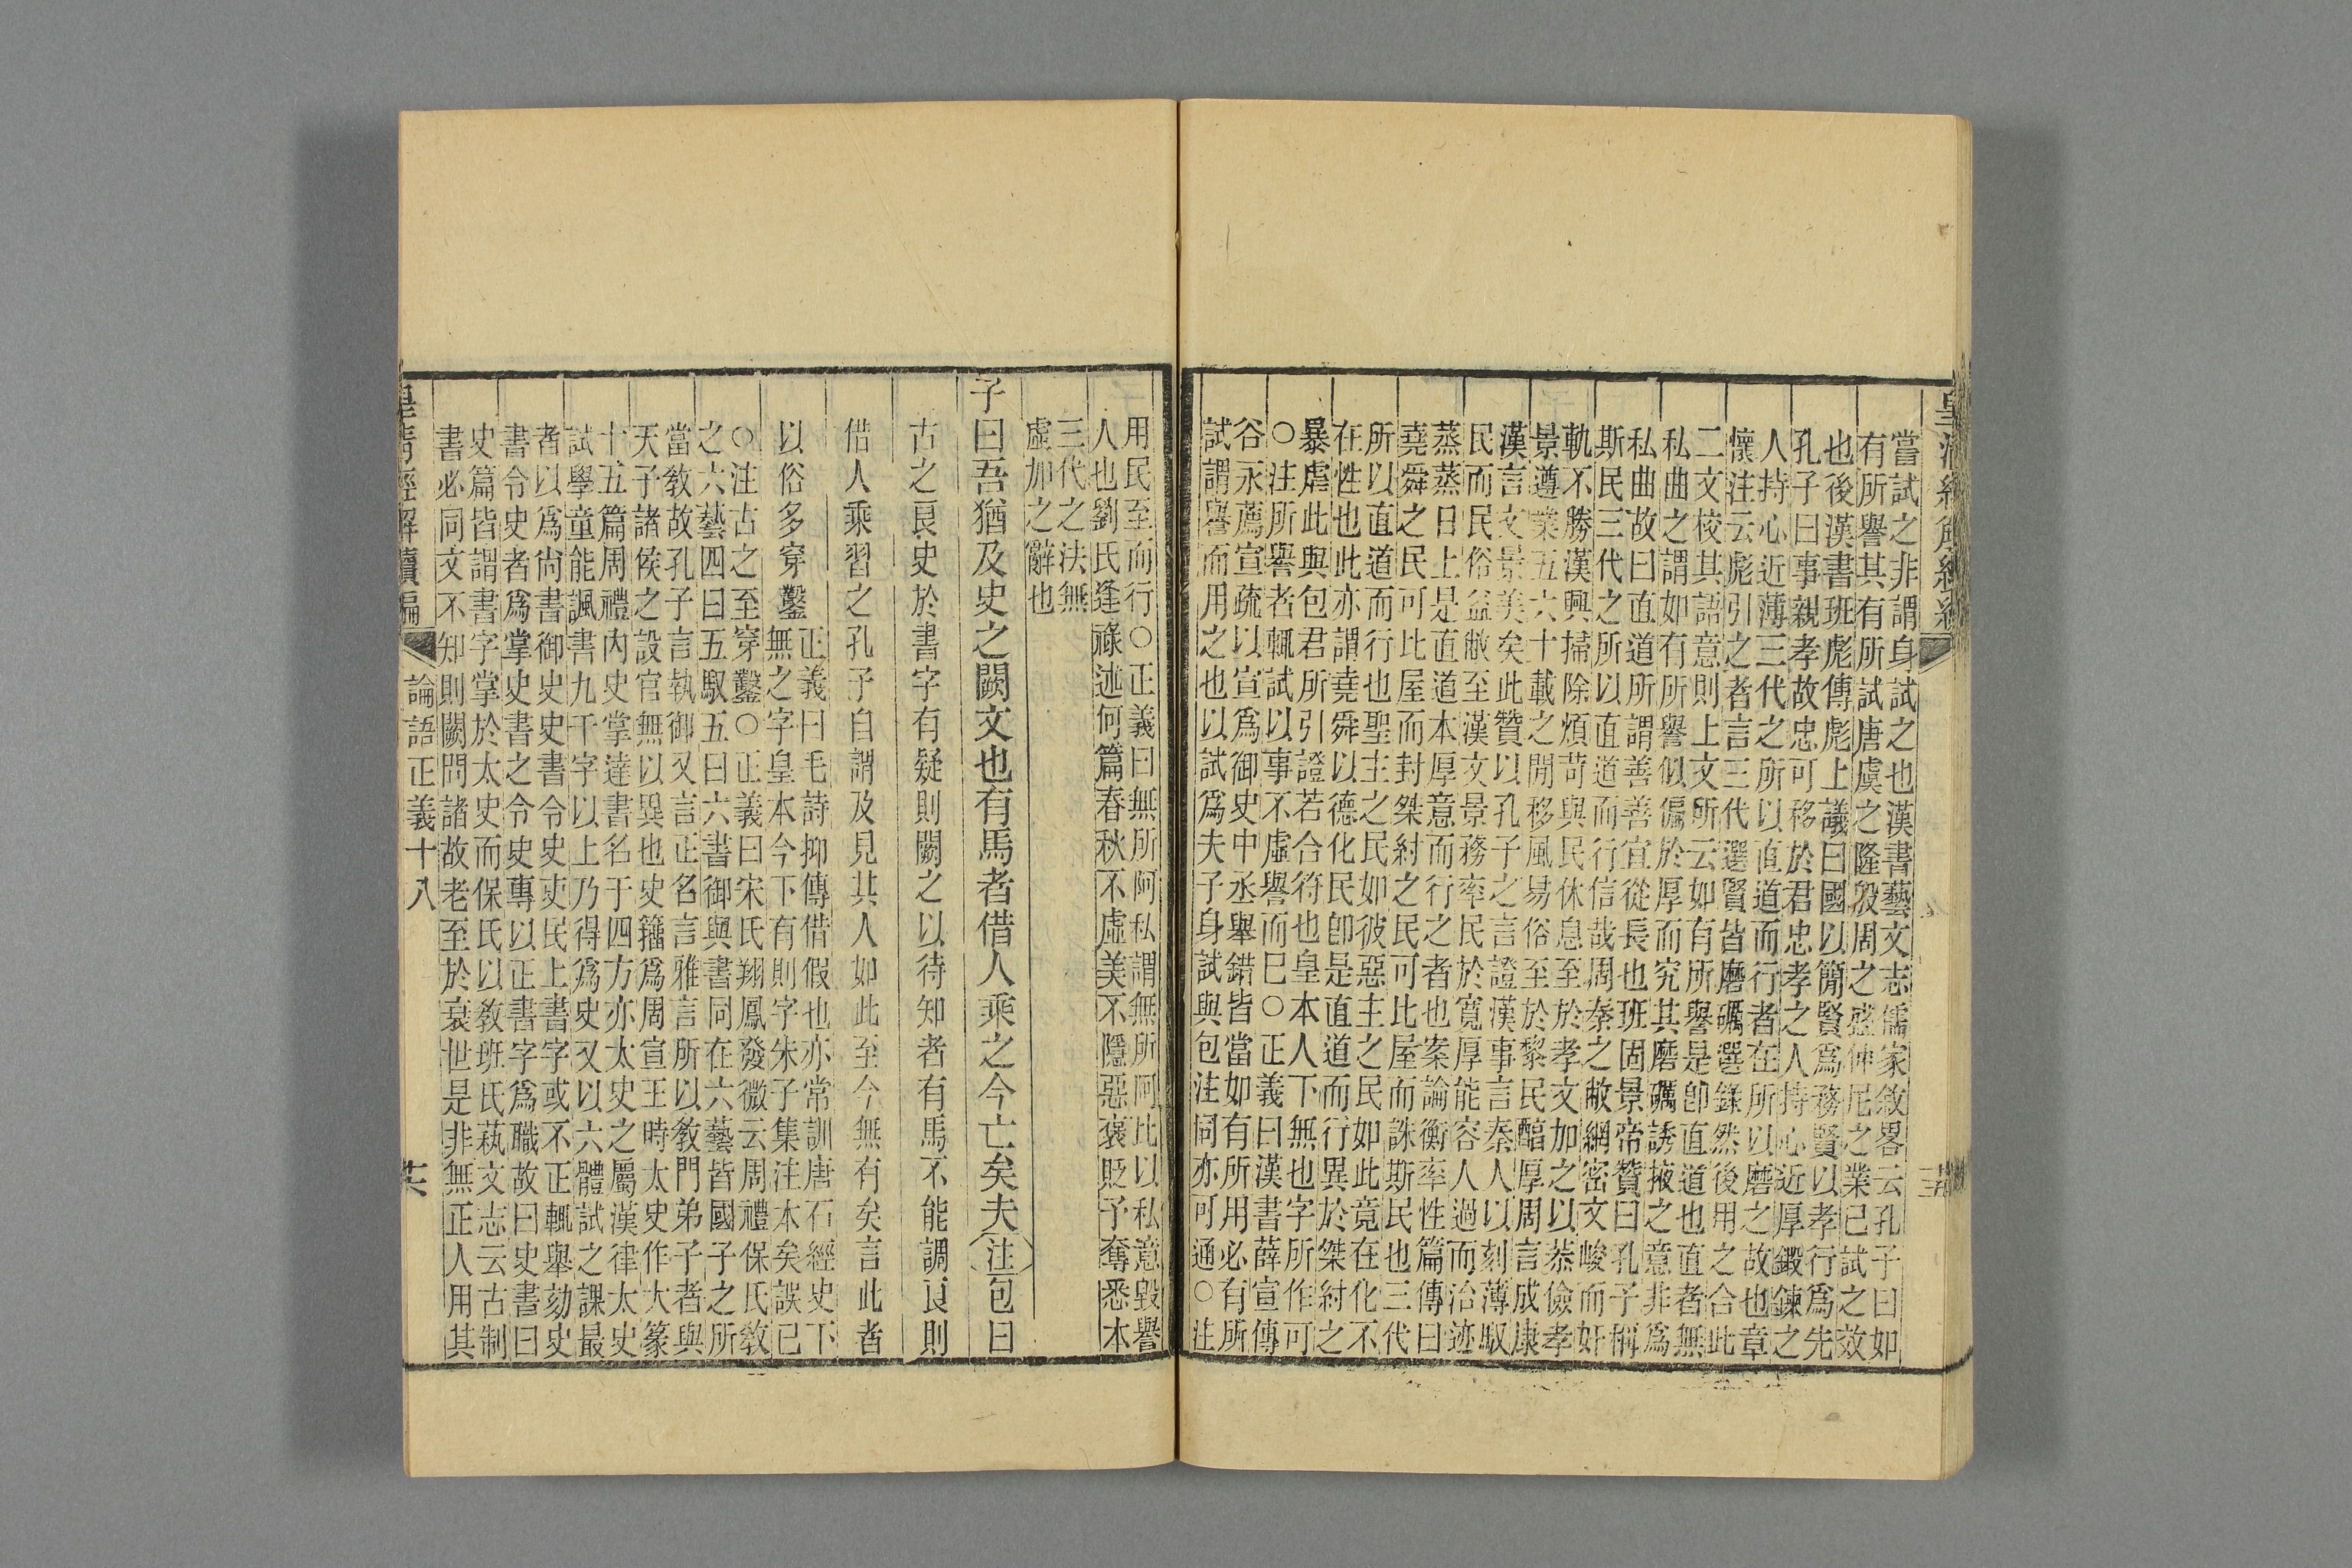 皇清經解續編
當試之非謂身試之也漢書藝文志儒家敘畧云孔子曰如
有所譽其有所試唐虞之隆殷周之盛仲尼之業已試之效
也後漢書班彪傳彪上議曰國以簡賢爲務賢以孝行爲先
孔子曰事親孝故忠可移於君忠孝之人持心近厚鍛鍊之
人持心近薄三代之所以直道而行者在所以磨之故也章
懷注云彪引之者言三代選賢皆磨礪選鍊然後用之合此
二文校其語意則上文所云如有所譽是卽直道也直者無
私曲之謂如有所譽似偏於厚而究其磨礪誘掖之意非爲
私曲故曰直道所謂善善宜從長也班固景帝贊曰孔子稱
斯民三代之所以直道而行信哉周秦之敝網密文峻而奸
軌不勝漢興掃除煩苛與民休息至於孝文加之以恭儉孝
景遵業五六十載之閒移風易俗至於黎民醇厚周言成康
漢言文景美矣此贊以孔子之言證漢事言秦人以刻薄馭
民而民俗益敝至漢文景務率民於寬厚能容人過而治迹
蒸蒸日上是直道本厚意而行之者也案論衡率性篇傳曰
堯舜之民可比屋而封桀紂之民可比屋而誅斯民也三代
所以直道而行也聖主之民如彼惡主之民如此竟在化不
在性也此亦謂堯舜以德化民卽是直道而行異於桀紂之
暴虐此與包君所引證若合符也皇本人下無也字所作可
○注所譽者輒試以事不虛譽而已○正義曰漢書薛宣傳
谷永薦宣疏以宣爲御史中丞舉錯皆當如有所用必有所
試謂譽而用之也以試爲夫子身試與包注同亦可通○注
用民至而行○正義曰無所阿私謂無所阿比以私意毀譽
人也劉氏逢祿述何篇春秋不虛美不隱惡褒貶予奪悉本
三代之法無
虛加之辭也
子曰吾猶及史之闕文也有馬者借人乘之今亡矣夫注包曰
古之良史於書字有疑則闕之以待知者有馬不能調良則
借人乘習之孔子自謂及見其人如此至今無有矣言此者
以俗多穿鑿
正義曰毛詩抑傳借假也亦常訓唐石經史下
無之字皇本今下有則字朱子集注本矣誤已
○注古之至穿鑿○正義曰宋氏翔鳳發微云周禮保氏敎
之六藝四曰五馭五曰六書御與書同在六藝皆國子之所
當敎故孔子言執御又言正名言雅言所以敎門弟子者與
天子諸侯之設官無以異也史籀爲周宣王時太史作大篆
十五篇周禮內史掌達書名于四方亦太史之屬漢律太史
試學童能諷書九千字以上乃得爲史又以六體試之課最
者以爲尙書御史史書令史吏民上書字或不正輒舉劾史
書令史者爲掌史書之令史專以正書字爲職故曰史書曰
史篇皆謂書字掌於太史而保氏以敎班氏蓺文志云古制
書必同文不知則闕問諸故老至於衰世是非無正人用其
皇清經解續編
論語正義十八